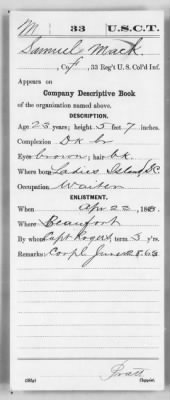 M | 33 | U.S.C.T.
Samuel Mack
, Co. F, 33 Reg't U. S. Col'd Inf.
Appears on
Company Descriptive Book
of the organization named above.
DESCRIPTION.
Age 23 years; height 5 feet 7 inches.
Complexion Dk br
Eyes brown; hair bk.
Where born Ladies Island, S.C.
Occupation Waiter
ENLISTMENT.
When Apr 22, 186
Where Beaufort
By whom Capt Rogers; term 3 y'rs.
Remarks: Corpl June
Pratt
(383g) Copyist.